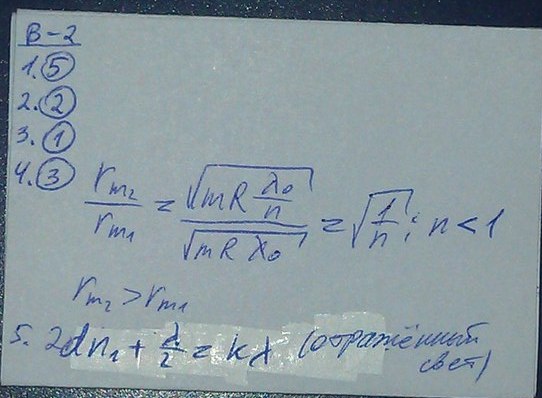 В-2
1. 5
2. 2
3. 1
4. 3
r_{m_2}/r_{m_1} = √(mR λ_0/n) / √(mR λ_0) = √(1/n); n < 1
r_{m_2} > r_{m_1}
5. 2dn_1 + λ/2 = kλ (отражённый
свет)